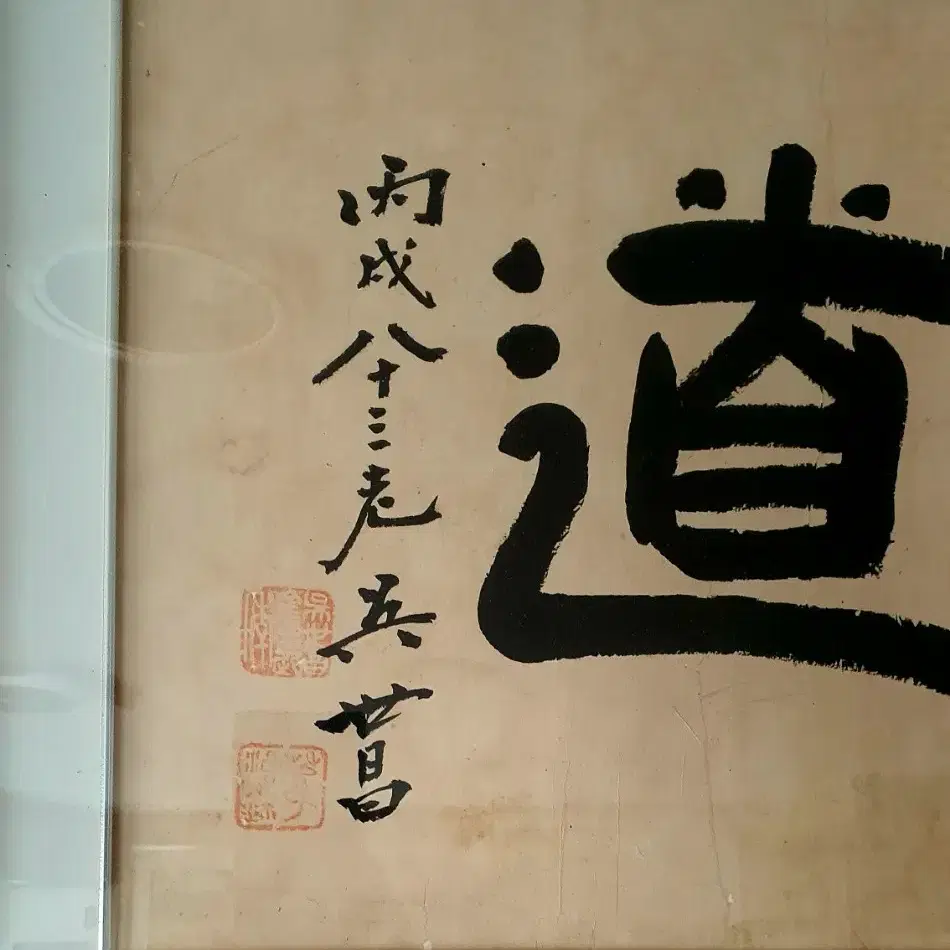 道
丙戌八十三老吳世昌